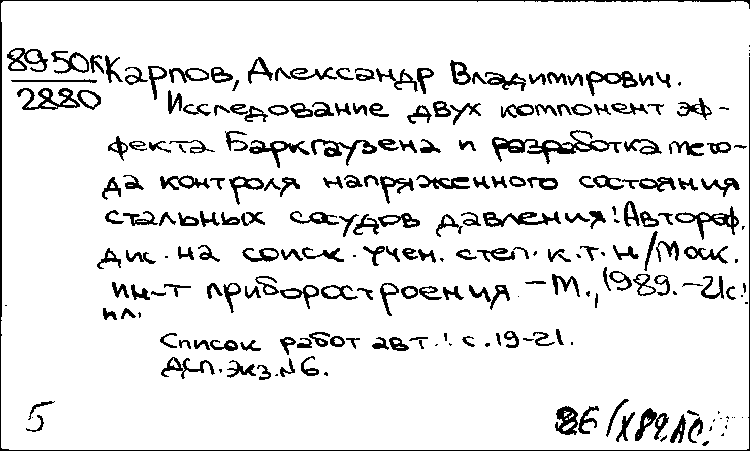 8950к Карпов, Александр Владимирович.
2880 Исследование двух компонент эф-
фекта Баркгаузена и разработка мето-
да контроля напряженного состояния
стальных сосудов давления: Автореф.
дис. на соиск. учен. степ. к.т.н/Моск.
ин-т приборостроения -М., 1989.-21с:
ил.
Список работ авт.: с.19-21.
ДСП. экз.№6.
5